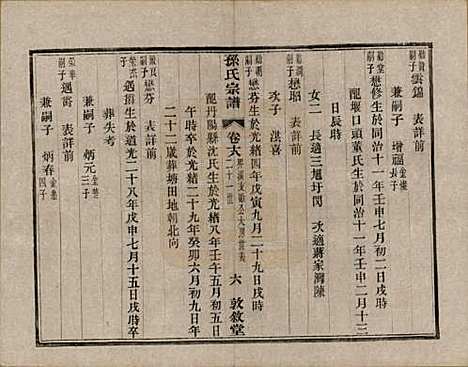 雲錦 表詳前
兼嗣子 增福
懋修生於同治十一年壬申七月初二日戌時
配堰口頭董氏生於同治十一年壬申二月十三
日辰時
女二 長適三旭圩閃 次適蔣家灣陳
懋昭 表詳前
次子 湛喜
懋芬生於光緒四年戊寅九月二十九日戌時
配丹陽縣沈氏生於光緒八年壬午五月初八日
午時卒於光緒二十九年癸卯六月初九日年
二十二歲葬塘田地朝北向
孫氏宗譜 卷六
六 敦敘堂
嗣子 懋芬 表詳前
嗣子 遇 生於道光二十八年戊申七月十五日戌時卒
葬失考
兼嗣子 炳元
嗣子 遇 表詳前
兼嗣子 炳春